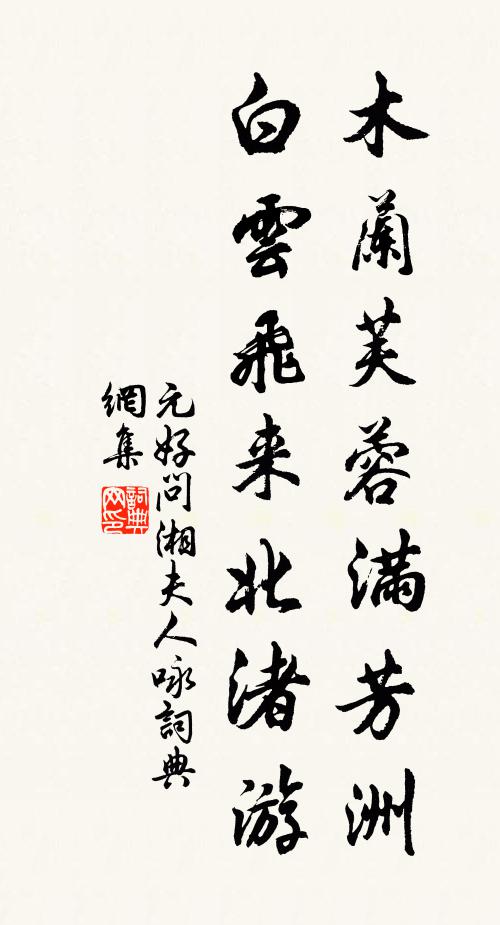 木蘭芙蓉滿芳洲
白雲飛来北渚游
元好問湘夫人咏詞典
網集
詞典网印